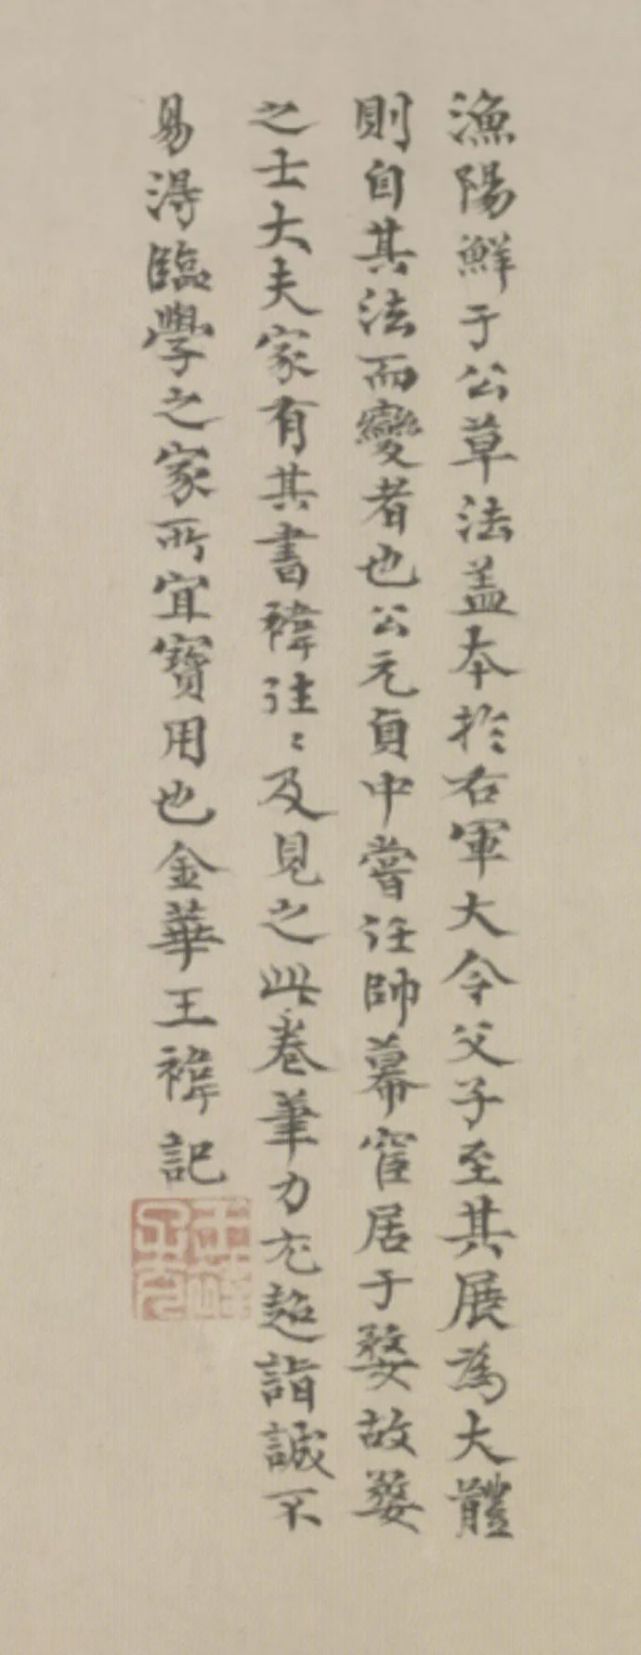 漁陽鮮于公草法盖本於右軍大令父子至其展為大體
則自其法而變者也公元貞中嘗任帥幕官居于婺故婺
之士大夫家有其書褘往〻及見之此卷筆力尤超詣誠不
易得臨學之家所宜寶用也金華王褘記